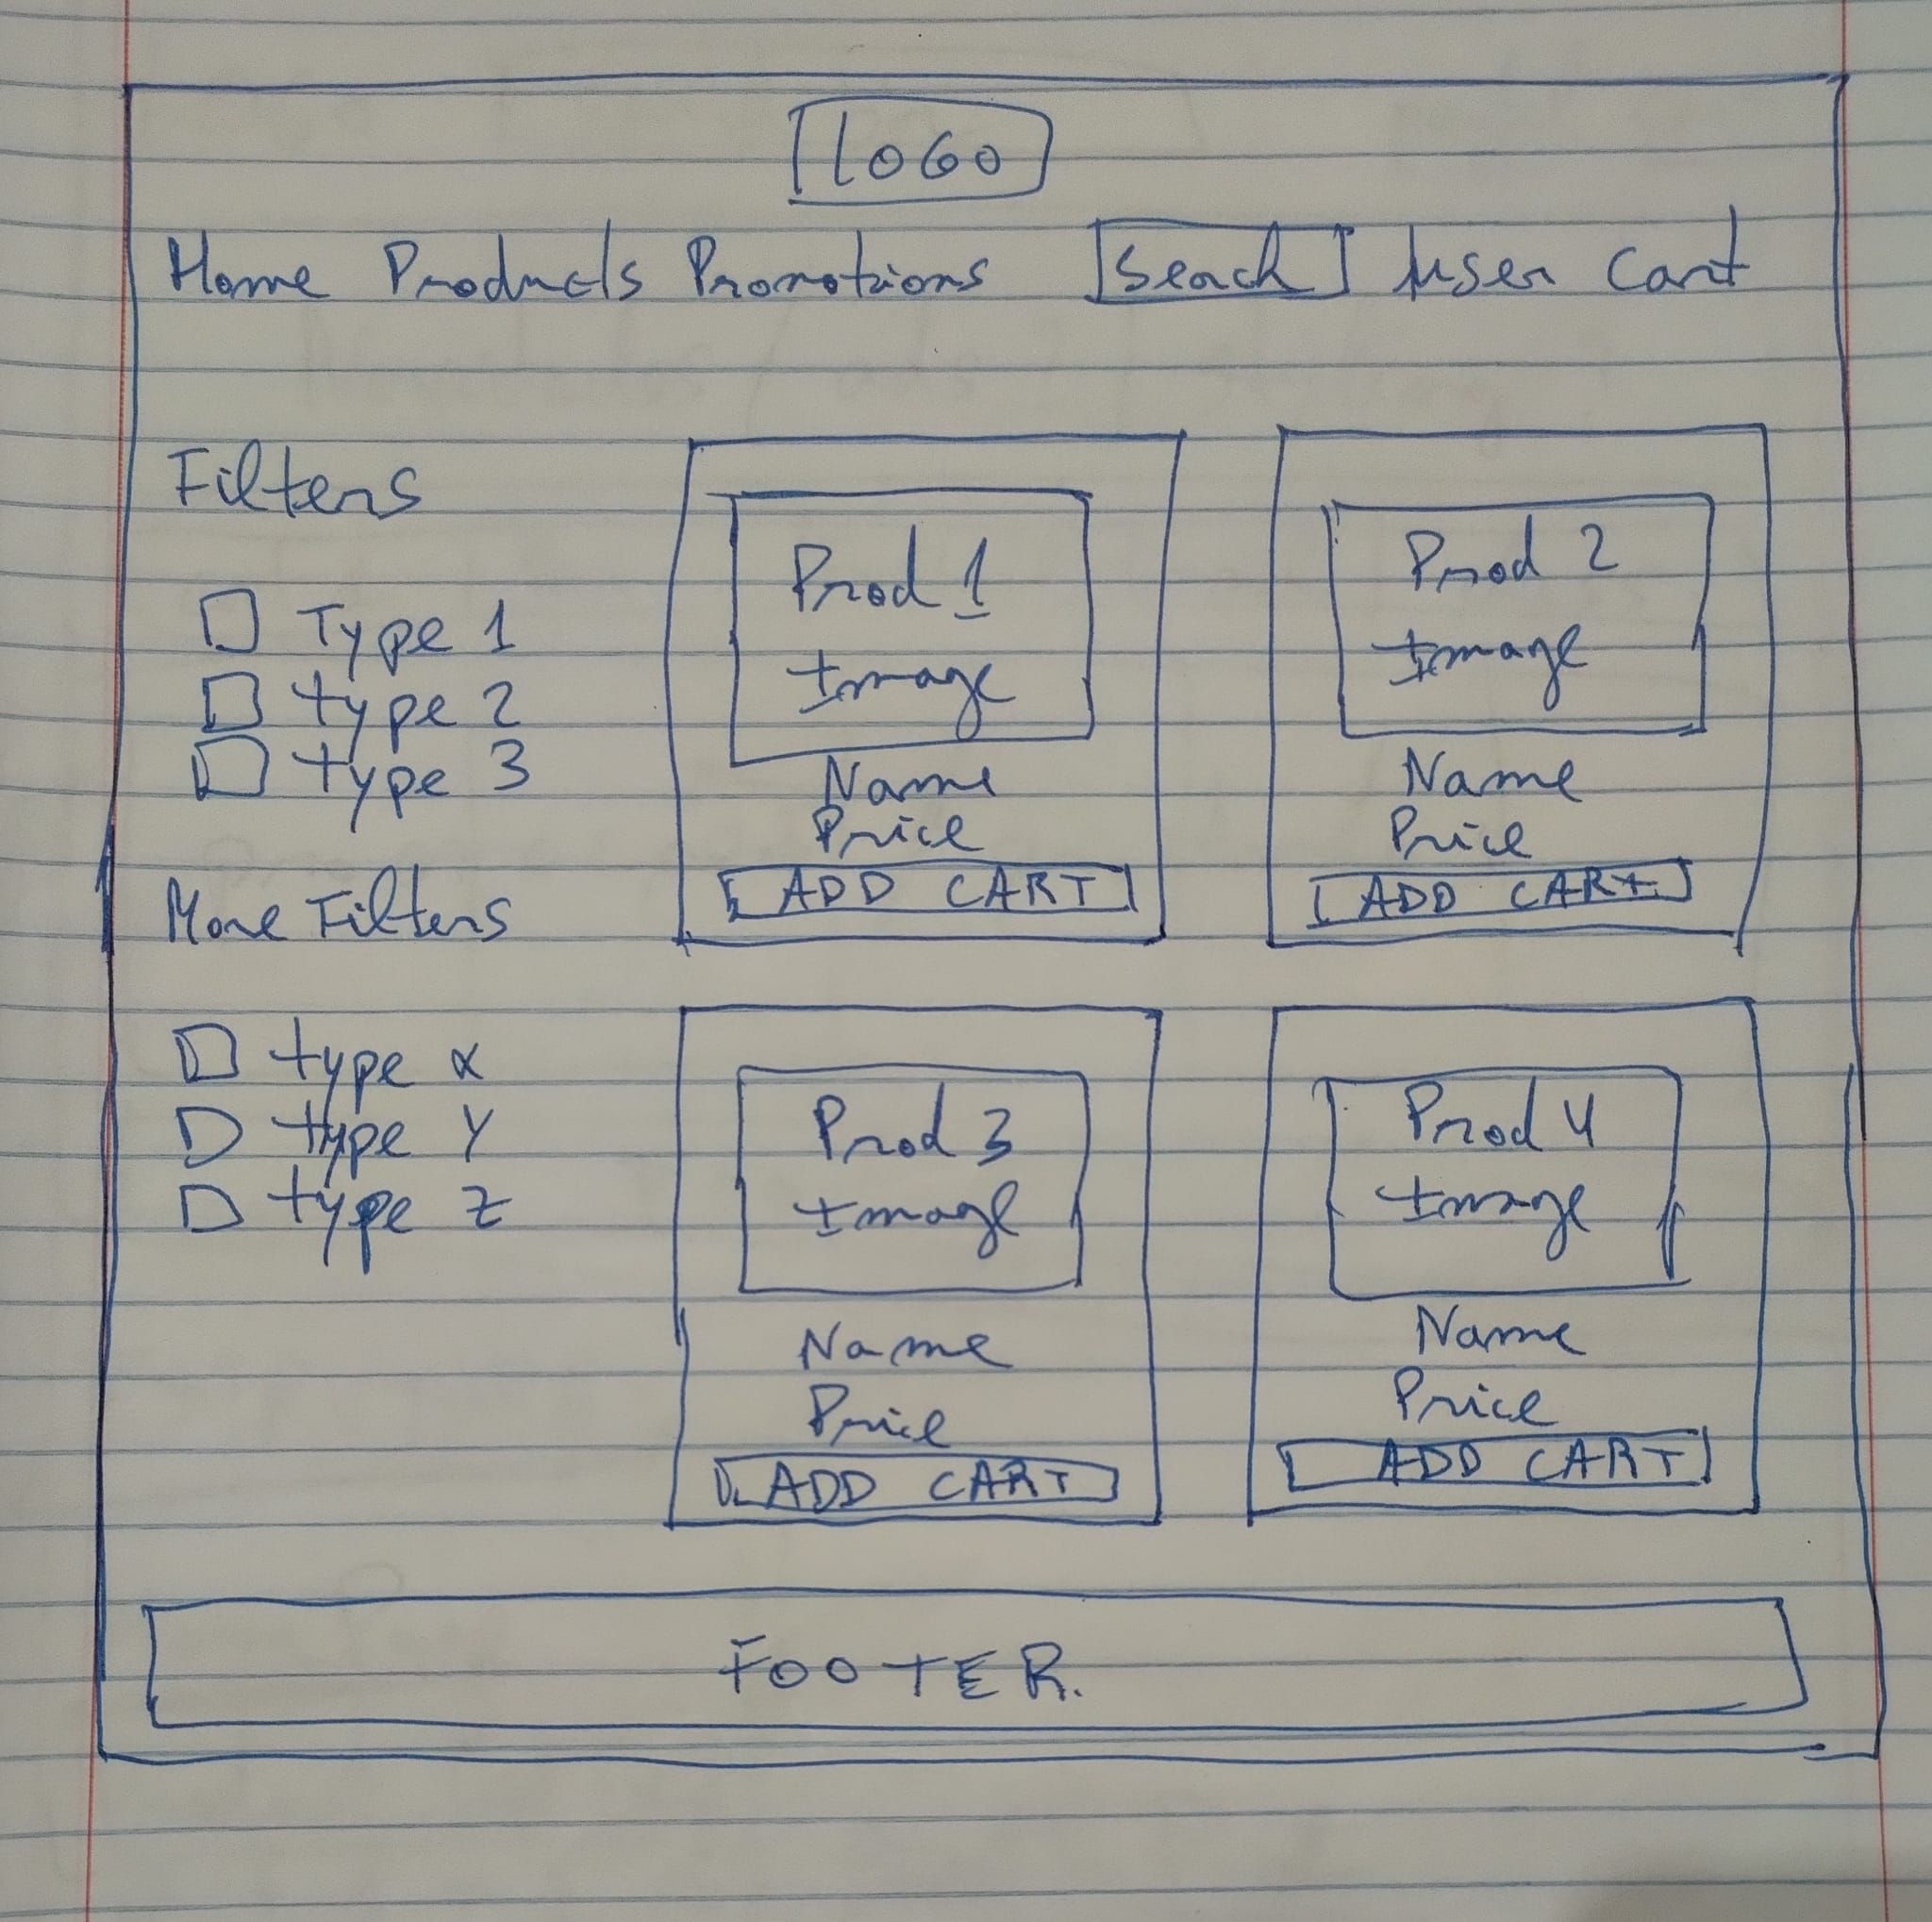 LOGO
Home Products Promotions Search User Cart
Filters
Type 1
type 2
type 3
More Filters
type x
type y
type z
Prod 1
Image
Name
Price
ADD CART
Prod 2
Image
Name
Price
ADD CART
Prod 3
Image
Name
Price
ADD CART
Prod 4
Image
Name
Price
ADD CART
FOOTER.